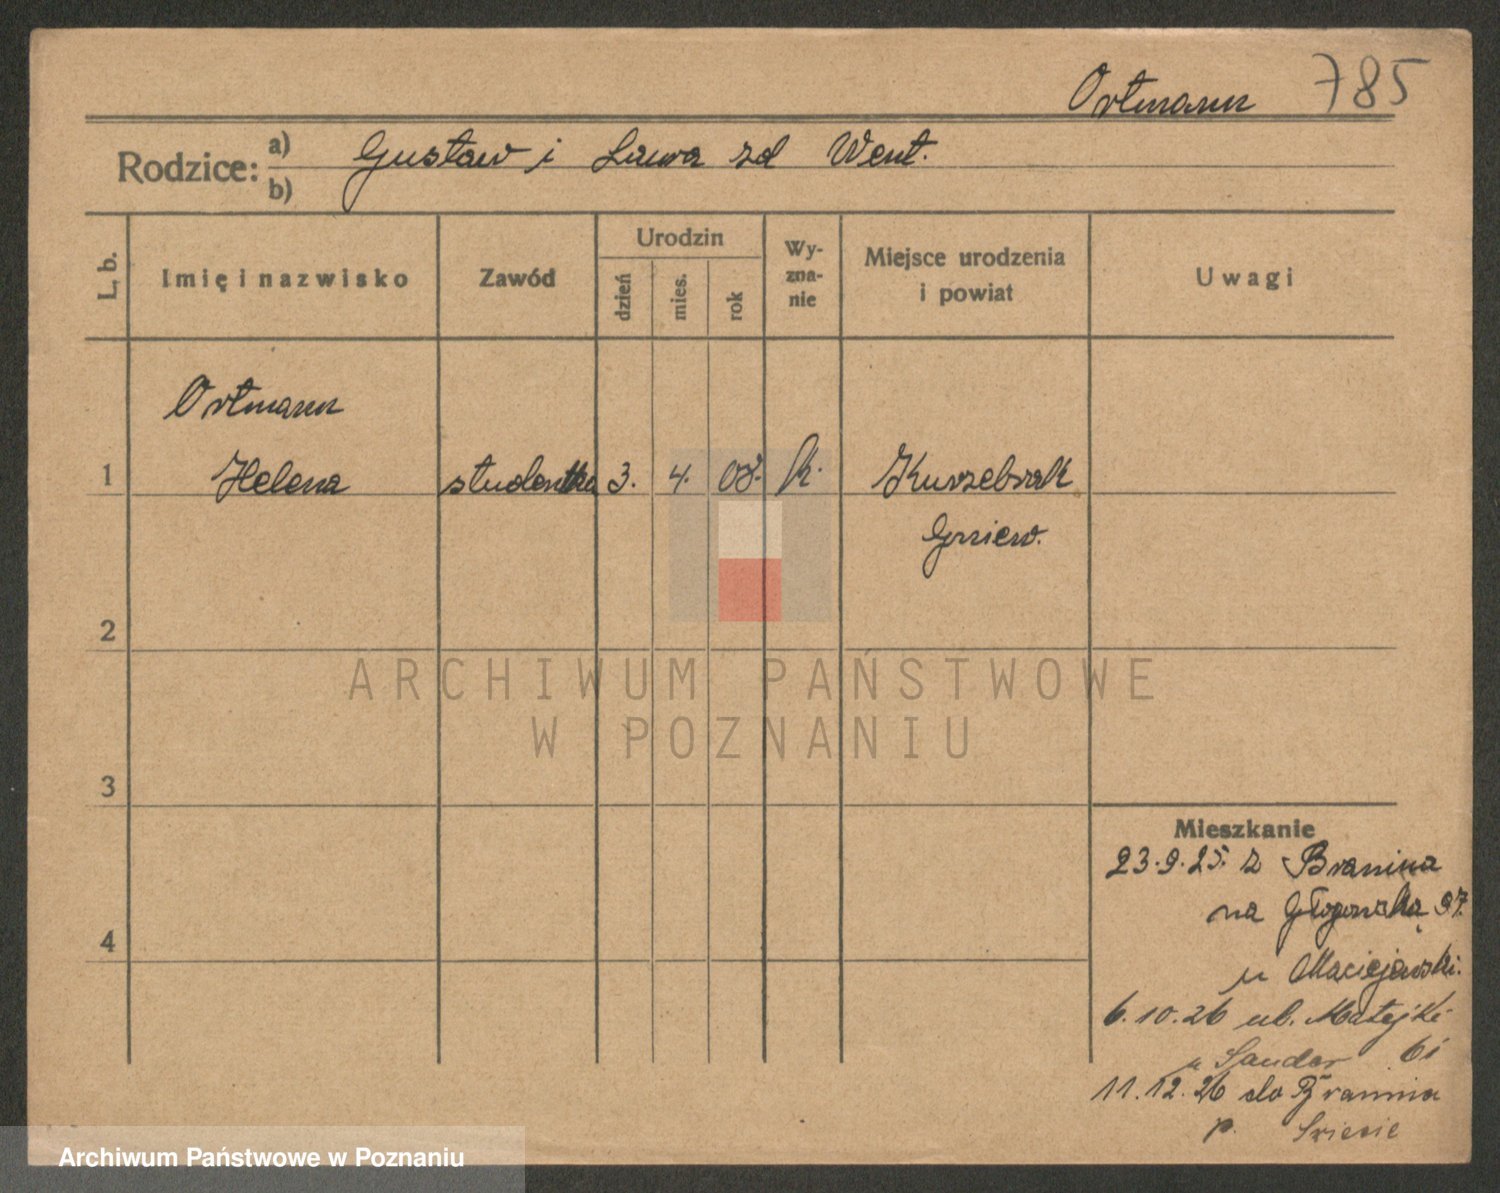 Ortmann 785
Rodzice: a) Gustaw i Laura zd Went.
b)
L. b.
Imię i nazwisko
Zawód
Urodzin
dzień
mies.
rok
Wy-
zna-
nie
Miejsce urodzenia
i powiat
Uwagi
Ortmann
1 Helena studentka 3. 4. 08. k. Kurzebrak
Gniew.
2
3
4
Mieszkanie
23.9.25. z Branina
na Głogowską 97.
u Maciejewski.
6.10.26 ul. Matejki
u Sander 61
11.12.26 do Bramina
p.
ARCHIWUM PAŃSTWOWE
W POZNANIU
Archiwum Państwowe w Poznaniu